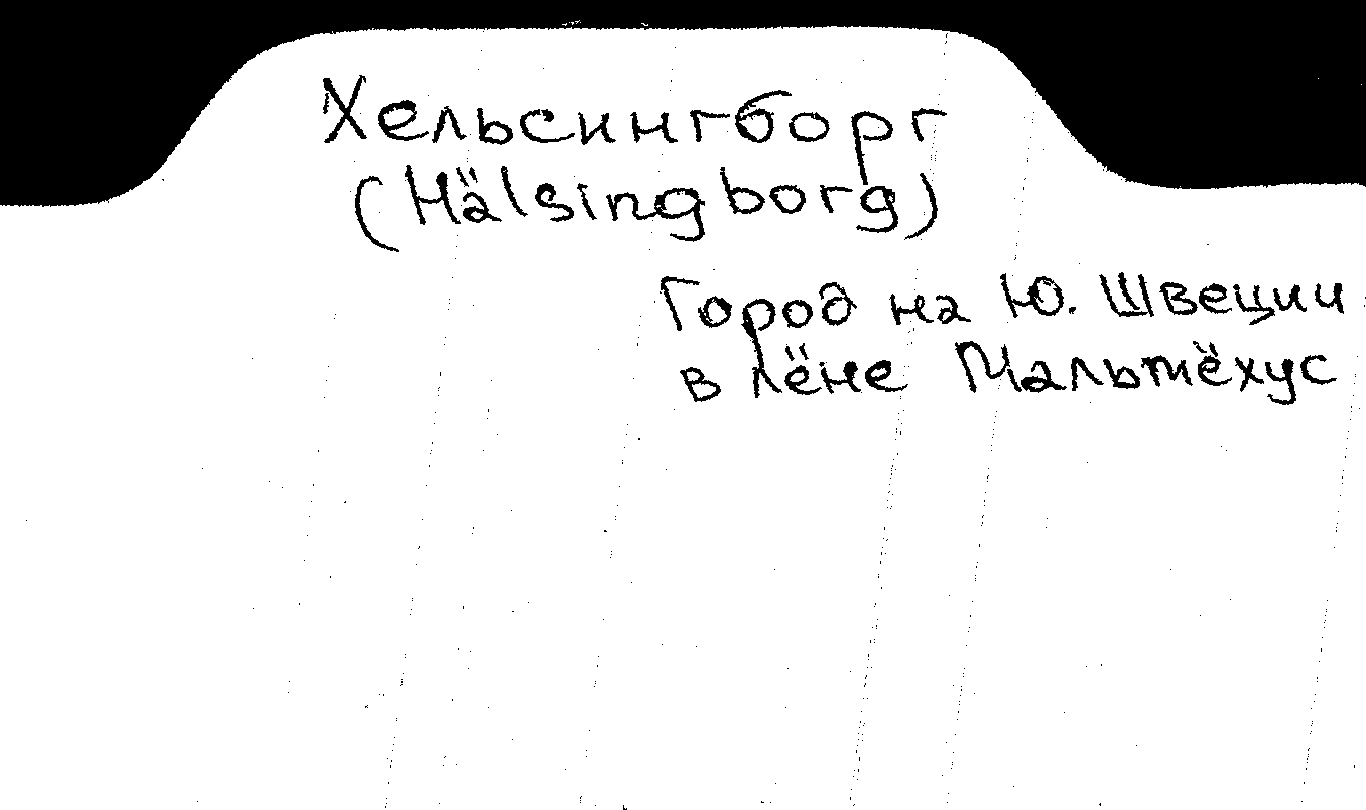 Хельсингборг
(Hälsingborg)
Город на Ю. Швеции
в лёне Мальмёхус